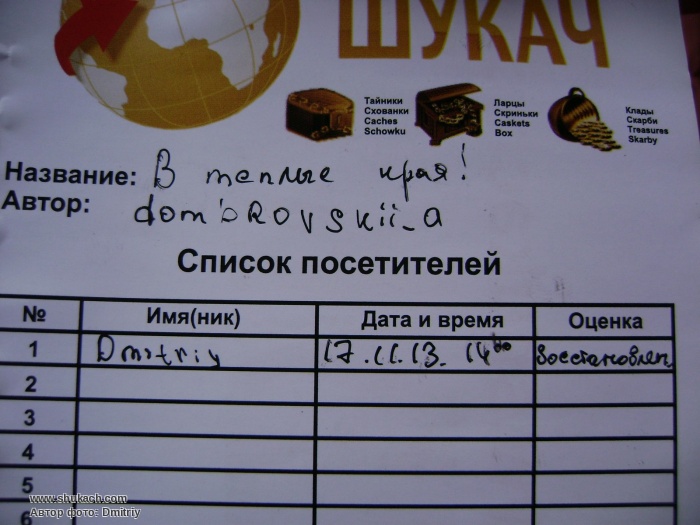 ШУКАЧ
Тайники
Схованки
Caches
Schowku
Ларцы
Скриньки
Caskets
Box
Клады
Скарби
Treasures
Skarby
Название: В теплые края!
Автор: dombrovskii_a
Список посетителей
№ Имя(ник) Дата и время Оценка
1 Dmitriy 17.11.13. 14⁰⁰ восстановлен
2
3
4
5
6
www.shukach.com
Автор фото: Dmitriy